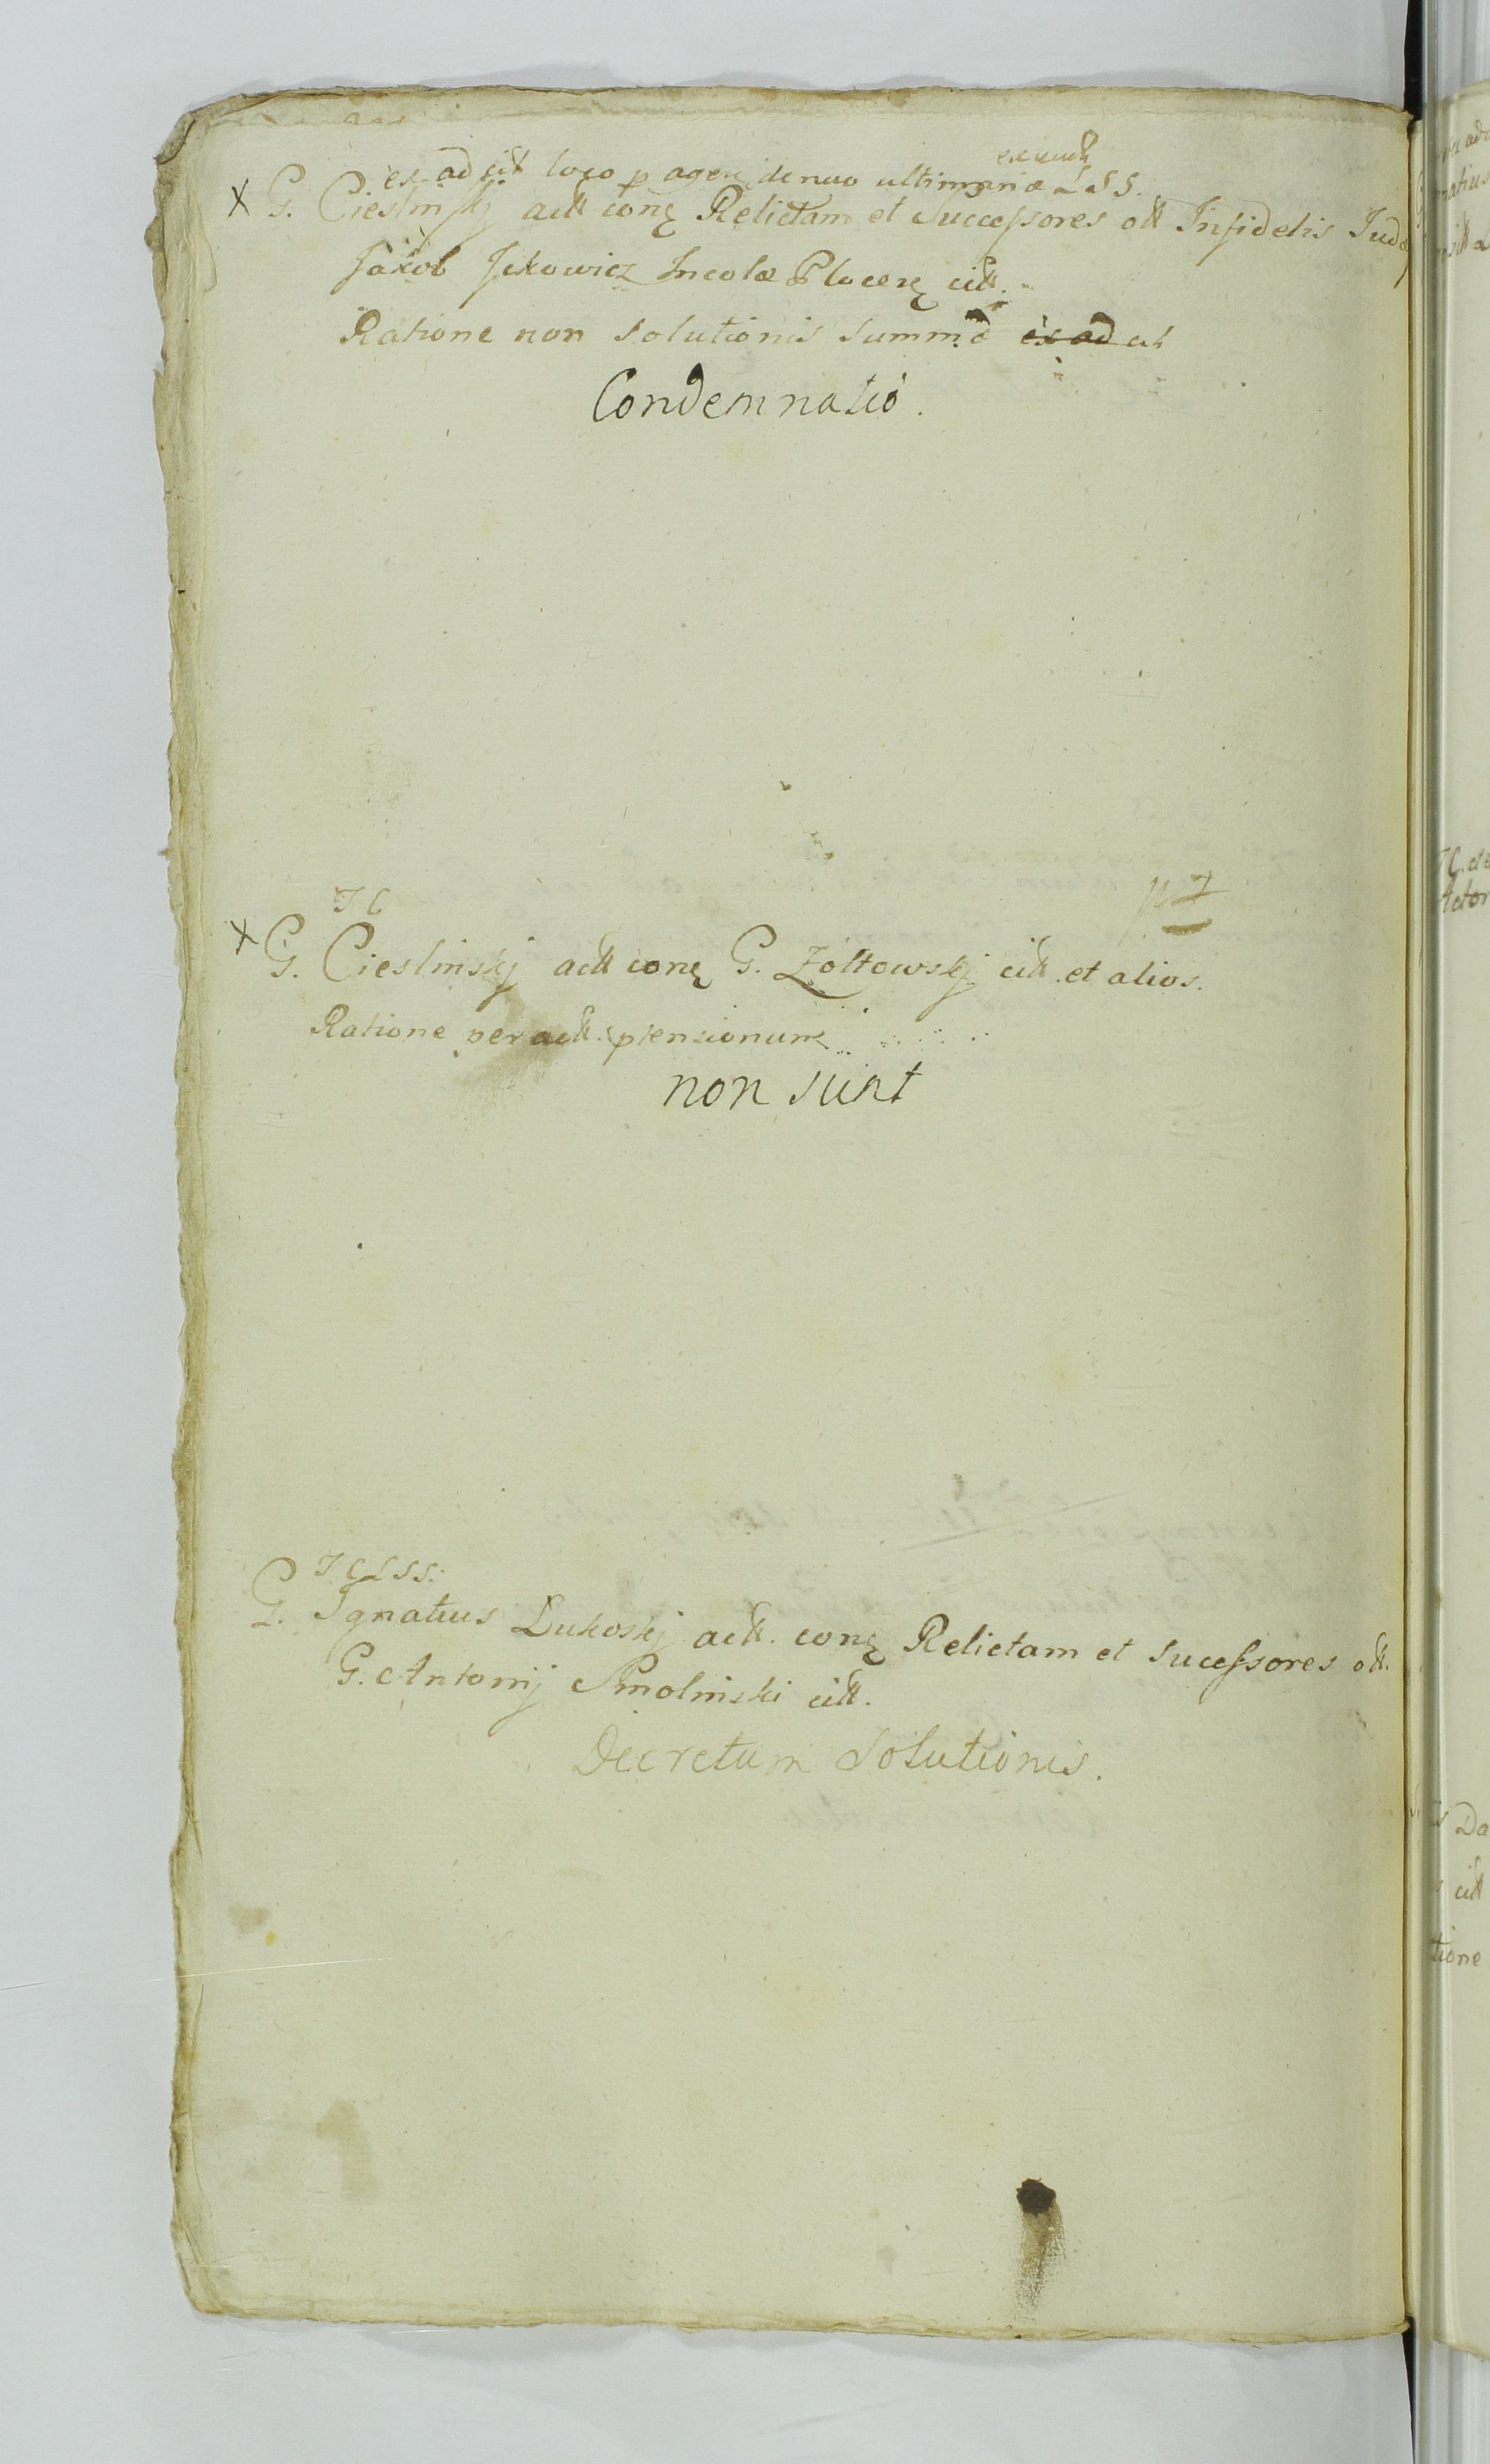 ex ad cit loco p agen denuo ultimariæ LSS.
X G. Cieslinskj actt conę Relictam et Successores ott Infidelis Jud
Jakob Jckowicz Incolæ Plocenę citt.
Ratione non solutionis Summæ ex ad cit
Condemnatio.
TC
X G. Cieslinskj actt conę G. Zołtowskj citt. et alios.
Ratione per actt. ptensionum
non sunt
TCLSS.
G. Ignatius Lukoskj actt. conę Relictam et Sucessores ott.
G. Antonij Smolinski citt.
Decretum Solutionis.